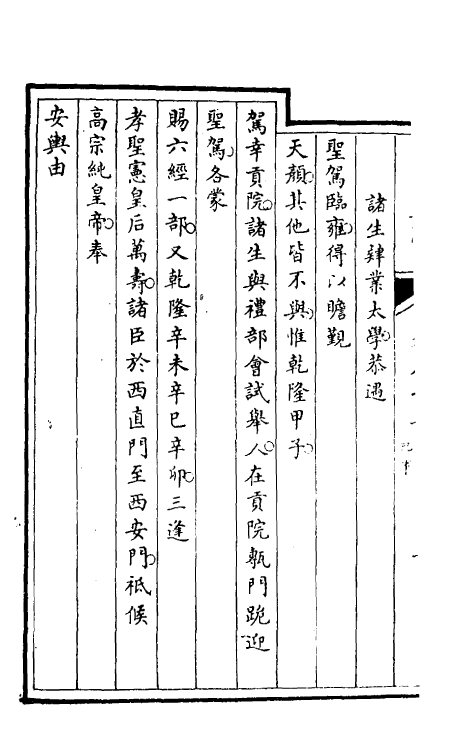 諸生肄業太學恭遇
聖駕臨雍得以瞻覲
天顏其他皆不與惟乾隆甲子
駕幸貢院諸生與禮部會試舉人在貢院甎門跪迎
聖駕各蒙
賜六經一部又乾隆辛未辛巳辛卯三逢
孝聖憲皇后萬壽諸臣於西直門至西安門祗候
高宗純皇帝奉
安輿由